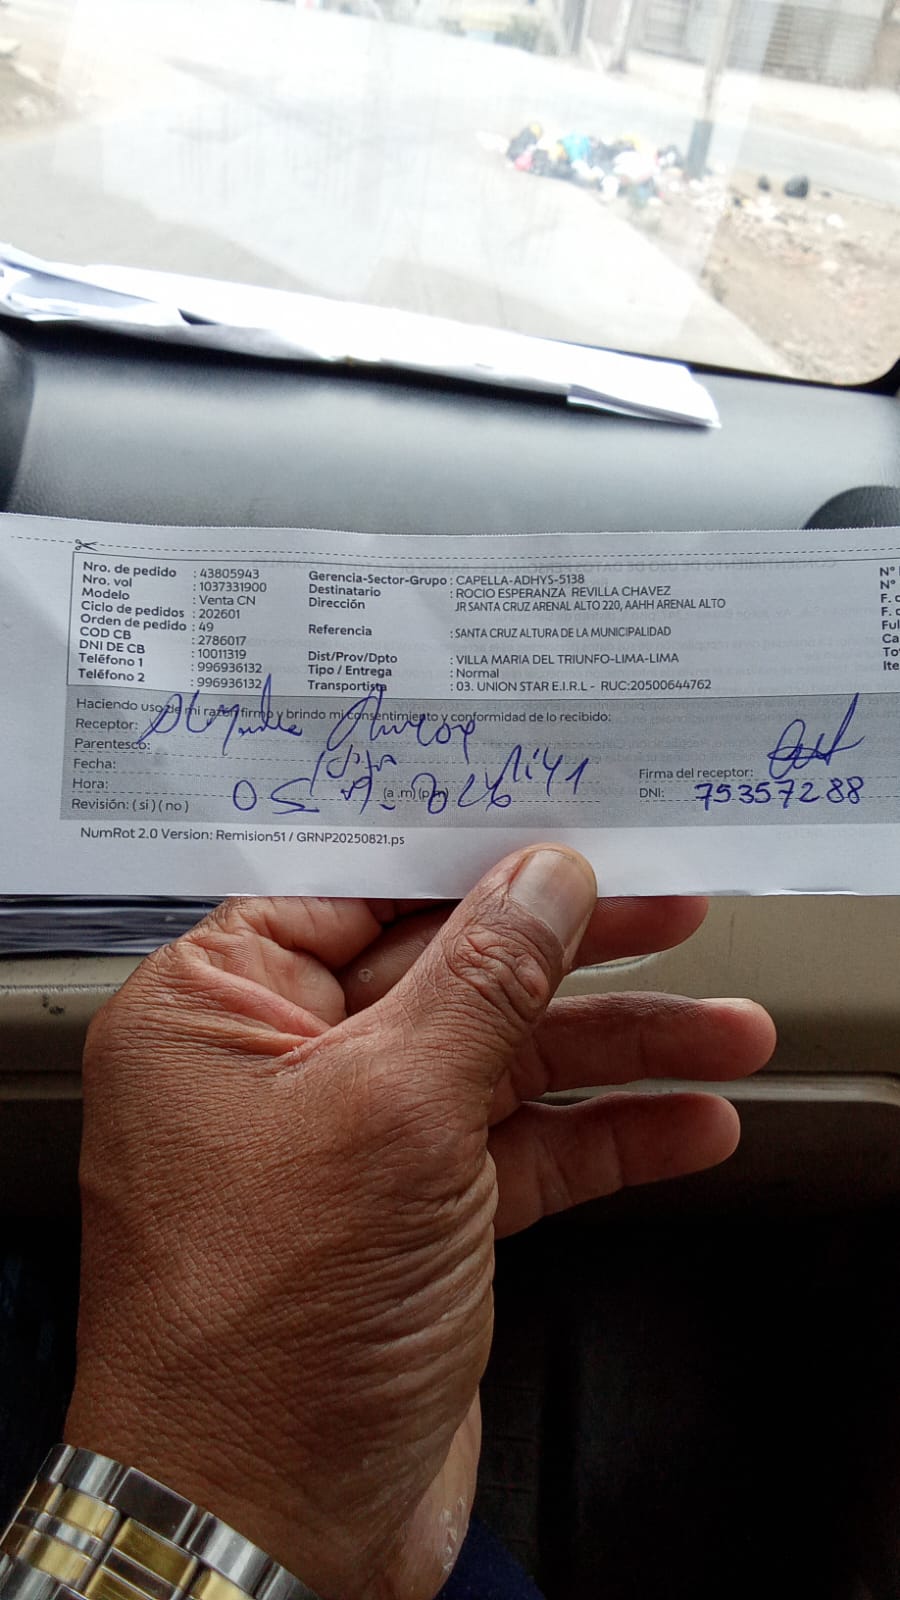 Nro. de pedido : 43805943
Nro. vol : 1037331900
Modelo : Venta CN
Ciclo de pedidos : 202601
Orden de pedido : 49
COD CB : 2786017
DNI DE CB : 10011319
Teléfono 1 : 996936132
Teléfono 2 : 996936132
Gerencia-Sector-Grupo : CAPELLA-ADHYS-5138
Destinatario : ROCIO ESPERANZA REVILLA CHAVEZ
Dirección JR SANTA CRUZ ARENAL ALTO 220, AAHH ARENAL ALTO
Referencia : SANTA CRUZ ALTURA DE LA MUNICIPALIDAD
Dist/Prov/Dpto : VILLA MARIA DEL TRIUNFO-LIMA-LIMA
Tipo / Entrega : Normal
Transportista : 03. UNION STAR E.I.R.L - RUC:20500644762
N°
N°
F. c
F. c
Ful
Ca
To
Ite
Haciendo uso de mi razón firmo y brindo mi consentimiento y conformidad de lo recibido:
Receptor:
Parentesco:
Fecha:
Hora: (a.m)(p.m)
Revisión: ( si ) ( no )
Firma del receptor:
DNI: 75357288
NumRot 2.0 Version: Remision51 / GRNP20250821.ps